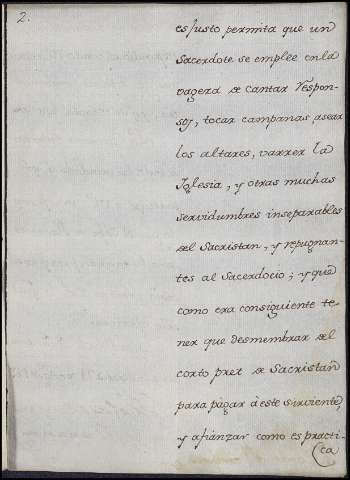 2.
es justo permita que un
Sacerdote se emplee en la
vageza de cantar Respon-
sos, tocar campanas, asear
los altares, varrer la
Yglesia, y otras muchas
servidumbres inseparables
del Sacristan, y repugnan-
tes al Sacerdocio; y que
como era consiguiente te-
ner que desmembrar del
corto pret de Sacristan
para pagar á este sirviente,
y afianzar como es practi-
ca